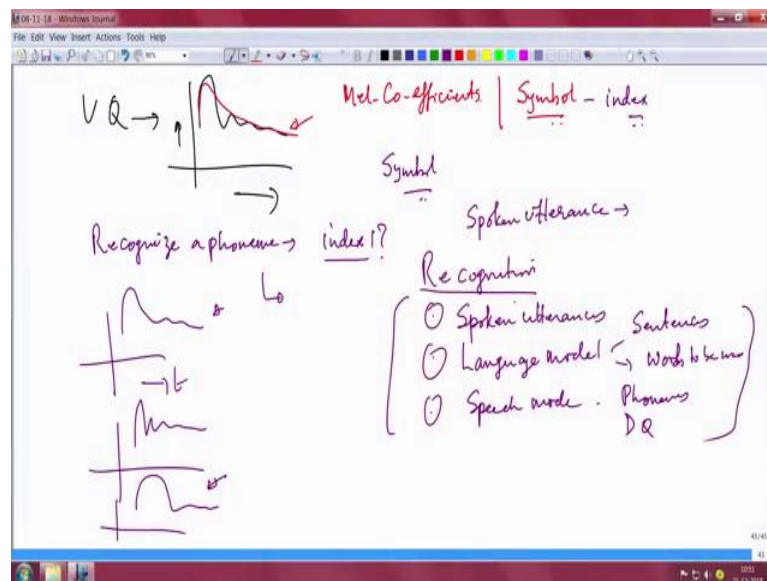 08-11-18 - Windows Journal
File Edit View Insert Actions Tools Help
VQ →
Mel-Co-efficients | Symbol - index
Symbol
Spoken utterance →
Recognize a phoneme → index 1?
Recognition
Spoken utterances Sentences
Language model → Words to be
Speech mode . Phonemes
DQ
→ t
43/43
43
10:51